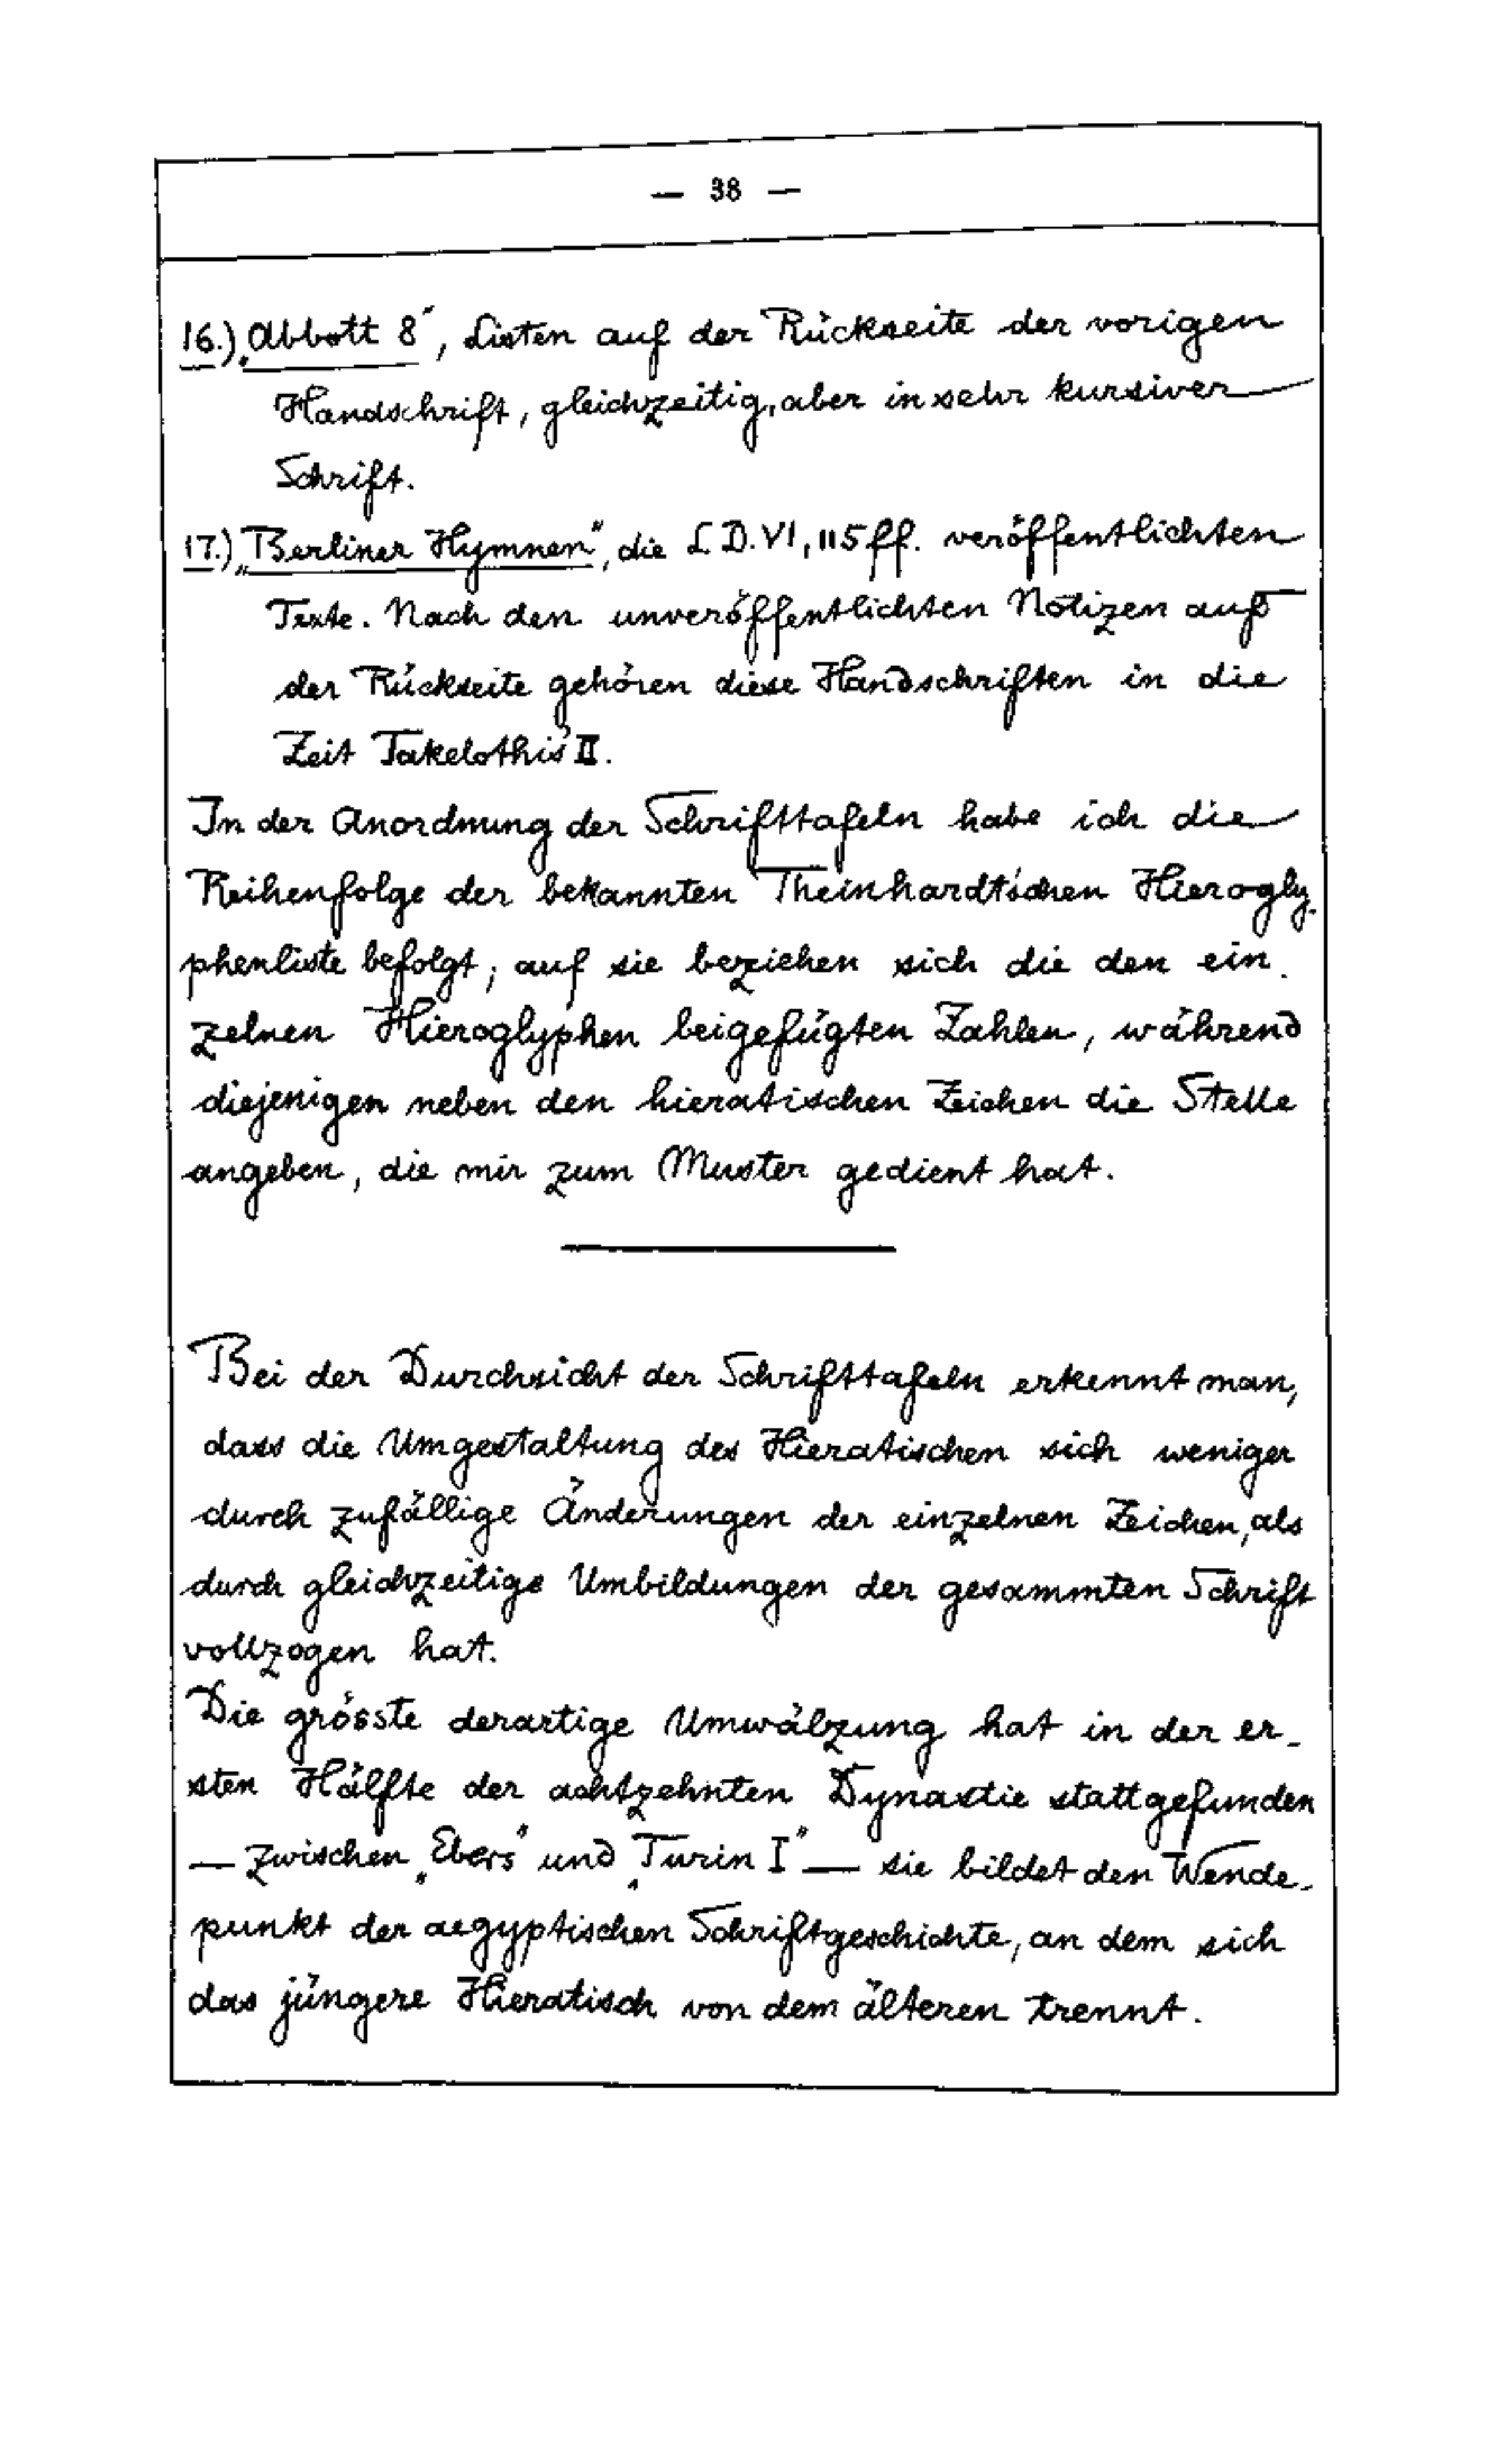 — 38 —
16.) „Abbott 8", Listen auf der Rückseite der vorigen
Handschrift, gleichzeitig, aber in sehr kursiver
Schrift.
17.) „Berliner Hymnen", die L.D. VI, 115 ff. veröffentlichten
Texte. Nach den unveröffentlichten Notizen auf
der Rückseite gehören diese Handschriften in die
Zeit Takelothis' II.
In der Anordnung der Schrifttafeln habe ich die
Reihenfolge der bekannten Theinhardt'schen Hierogly-
phenliste befolgt; auf sie beziehen sich die den ein-
zelnen Hieroglyphen beigefügten Zahlen, während
diejenigen neben den hieratischen Zeichen die Stelle
angeben, die mir zum Muster gedient hat.
Bei der Durchsicht der Schrifttafeln erkennt man,
dass die Umgestaltung des Hieratischen sich weniger
durch zufällige Änderungen der einzelnen Zeichen, als
durch gleichzeitige Umbildungen der gesammten Schrift
vollzogen hat.
Die grösste derartige Umwälzung hat in der er-
sten Hälfte der achtzehnten Dynastie stattgefunden
— zwischen „Ebers" und „Turin I" — sie bildet den Wende-
punkt der aegyptischen Schriftgeschichte, an dem sich
das jüngere Hieratisch von dem älteren trennt.